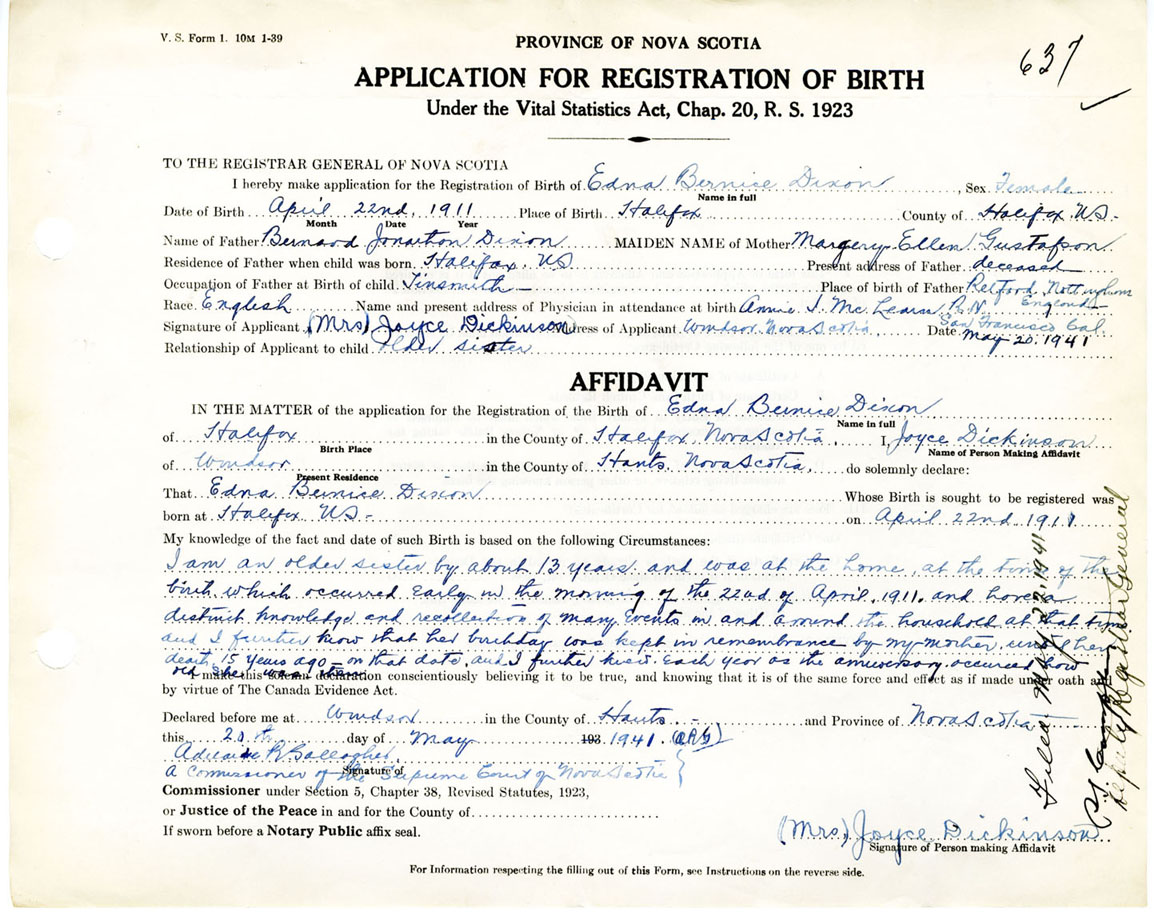 V. S. Form 1. 10M 1-39
637
PROVINCE OF NOVA SCOTIA
APPLICATION FOR REGISTRATION OF BIRTH
Under the Vital Statistics Act, Chap. 20, R. S. 1923
TO THE REGISTRAR GENERAL OF NOVA SCOTIA
I hereby make application for the Registration of Birth of Edna Bernice Dixon, Sex Female
Name in full
Date of Birth April 22nd, 1911 Place of Birth Halifax County of Halifax, N.S.
Month Date Year
Name of Father Bernard Jonathon Dixon MAIDEN NAME of Mother Margery Ellen Gustafson
Residence of Father when child was born Halifax, NS Present address of Father deceased
Occupation of Father at Birth of child Tinsmith Place of birth of Father Retford, Nottingham England
Race English Name and present address of Physician in attendance at birth Annie I. McLearn R.N. San Francisco Cal.
Signature of Applicant (Mrs) Joyce Dickinson Address of Applicant Windsor, Nova Scotia Date May 20, 1941
Relationship of Applicant to child older sister
AFFIDAVIT
IN THE MATTER of the application for the Registration of the Birth of Edna Bernice Dixon
Name in full
of Halifax in the County of Halifax, Nova Scotia, I, Joyce Dickinson
Birth Place Name of Person Making Affidavit
of Windsor in the County of Hants, Nova Scotia, do solemnly declare:
Present Residence
That Edna Bernice Dixon Whose Birth is sought to be registered was
born at Halifax NS on April 22nd, 1911
My knowledge of the fact and date of such Birth is based on the following Circumstances:
I am an older sister by about 13 years and was at the home, at the time of the
birth which occurred early in the morning of the 22nd of April, 1911, and have a
distinct knowledge and recollection of many events in and around the household at that time
and I further know that her birthday was kept in remembrance by my mother, until her
death, 15 years ago on that date, and I further knew each year as the anniversary occurred how
old she was
make this solemn declaration conscientiously believing it to be true, and knowing that it is of the same force and effect as if made under oath and
by virtue of The Canada Evidence Act.
Declared before me at Windsor in the County of Hants and Province of Nova Scotia
this 20th day of May 193 1941 (ARG)
Adelaide R Gallagher
A Commissioner of the Supreme Court of Nova Scotia
Signature of
Commissioner under Section 5, Chapter 38, Revised Statutes, 1923,
or Justice of the Peace in and for the County of
If sworn before a Notary Public affix seal.
(Mrs) Joyce Dickinson
Signature of Person making Affidavit
For Information respecting the filling out of this Form, see Instructions on the reverse side.
Filed May 22 1941
Deputy Registrar General